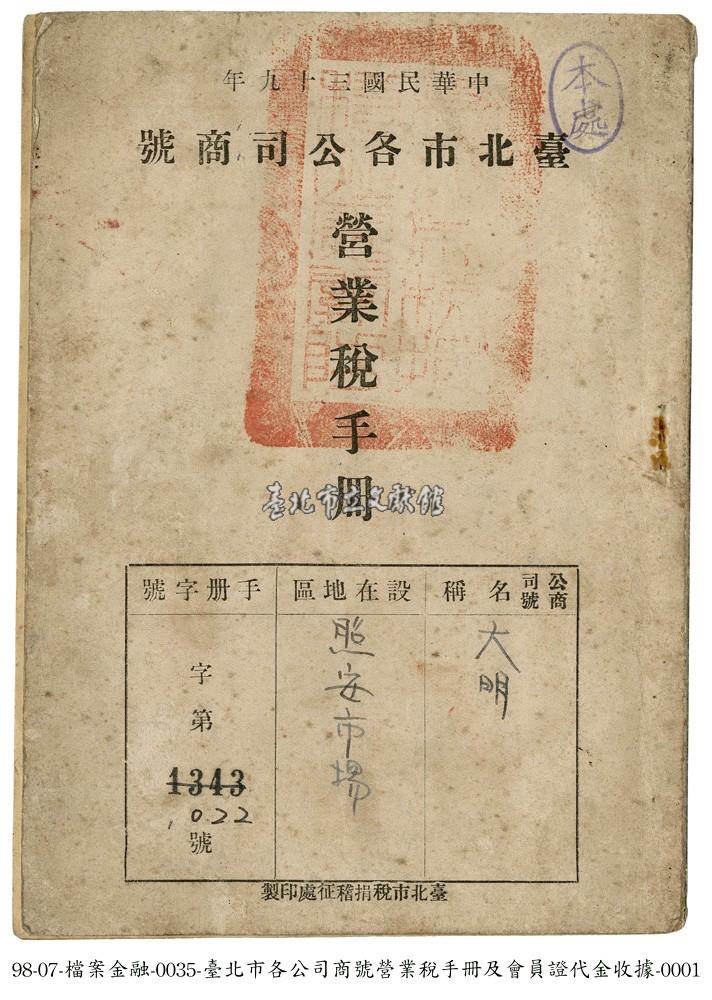 中華民國三十九年
本處
臺北市各公司商號
營業稅手冊
臺北市立文獻館
公司商號名稱
設在地區
手册字號
大明
照安市場
字第
1343
1022
號
臺北市稅捐稽征處印製
98-07-檔案金融-0035-臺北市各公司商號營業稅手冊及會員證代金收據-0001